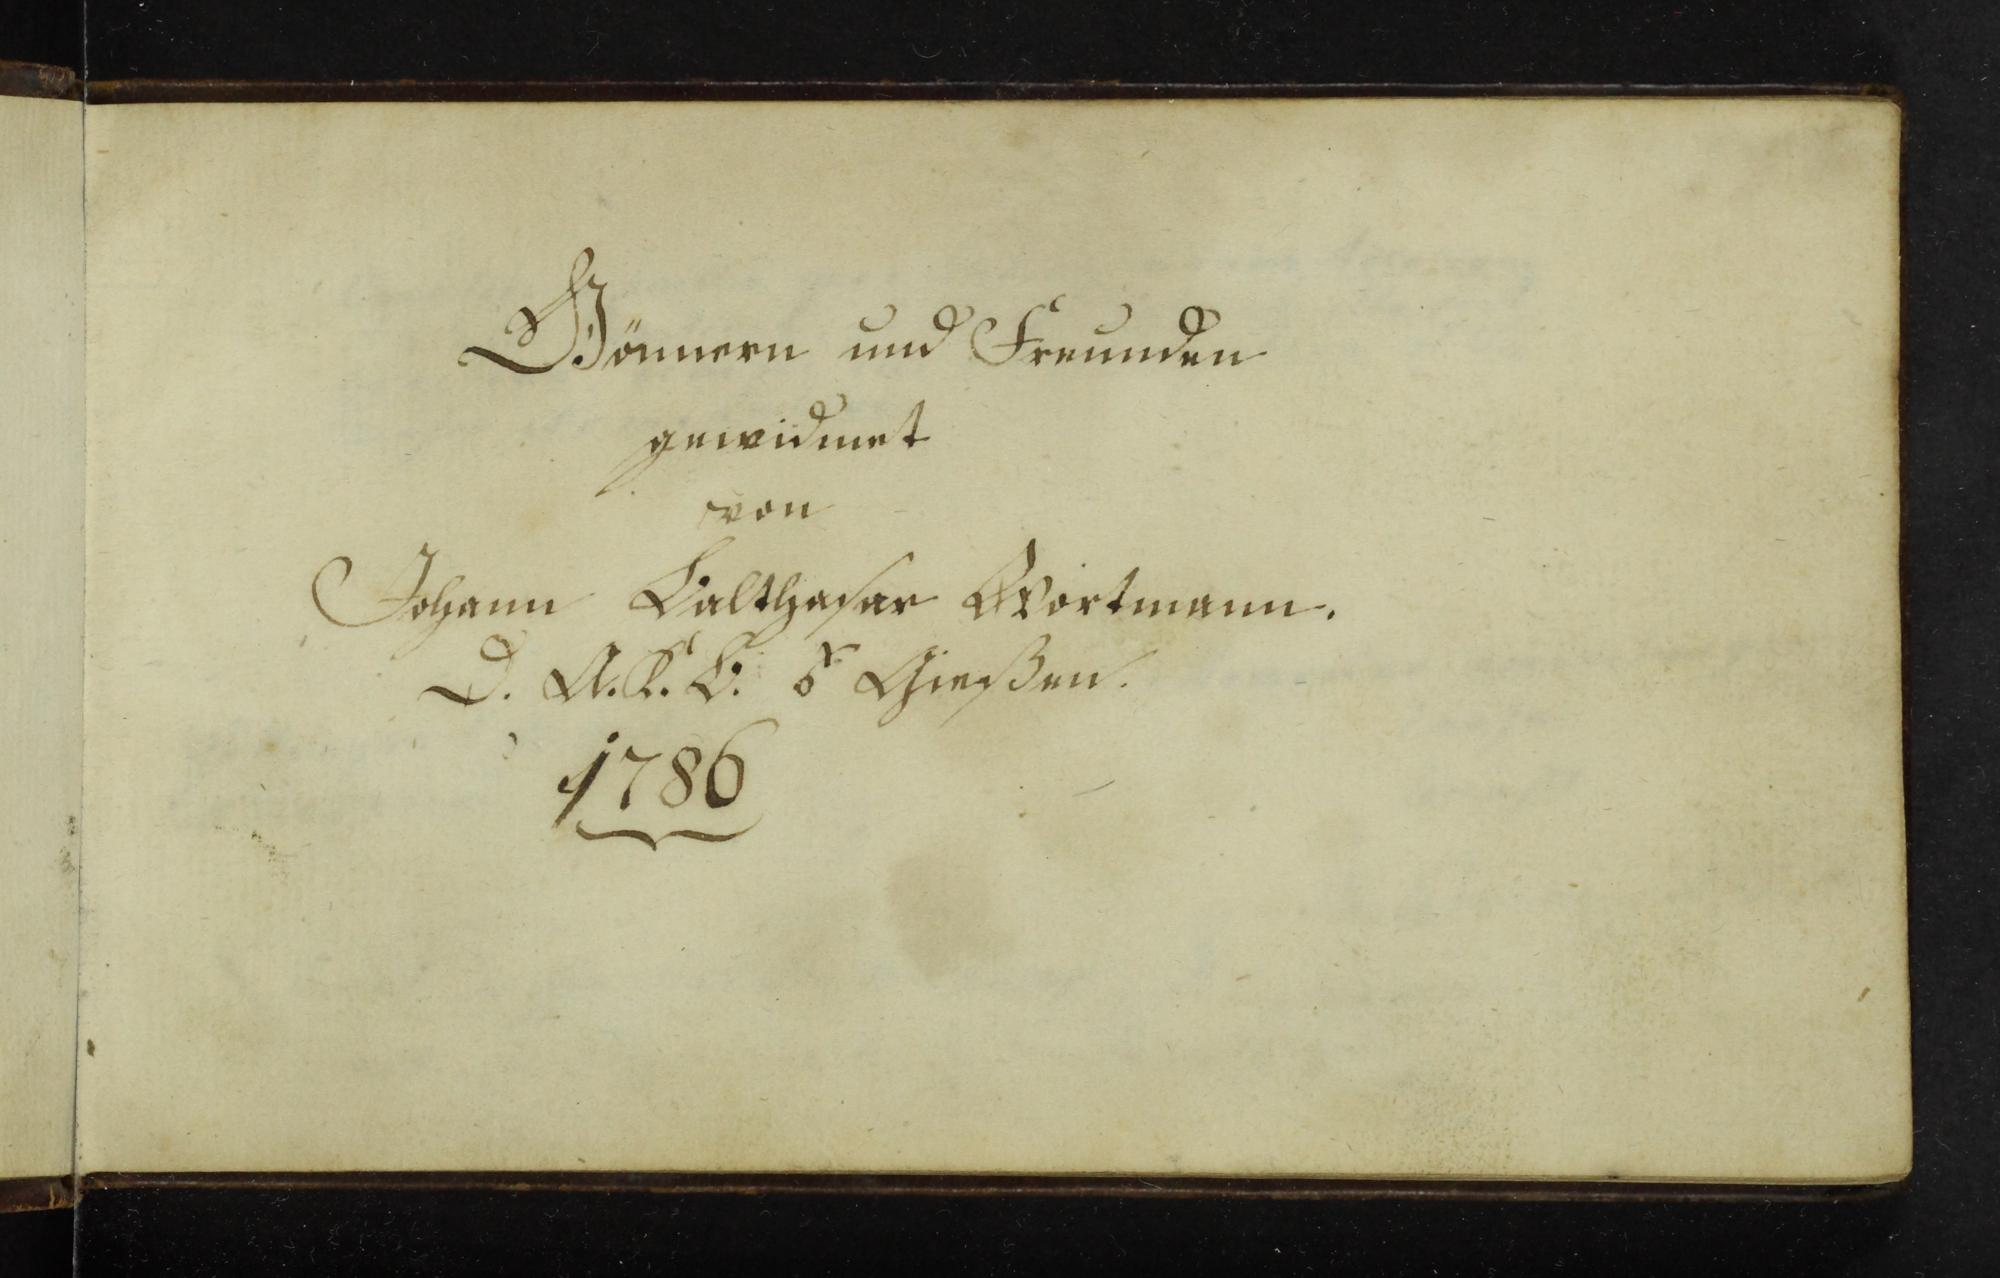 Gönnern und Freunden
gewidmet
von
Johann Balthasar Wortmann.
D. A. K. B. z Giessen.
1786